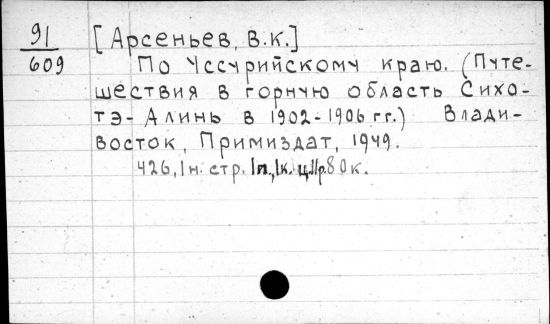 91 [Арсеньев, В.К.]
609 По Уссурийскому краю. (Путе-
шествия в горную область Сихо-
тэ-Алинь в 1902-1906 гг.) Влади-
восток, Примиздат, 1949.
426, 1 н. стр. 1п., 1к. ц. 11р.80к.